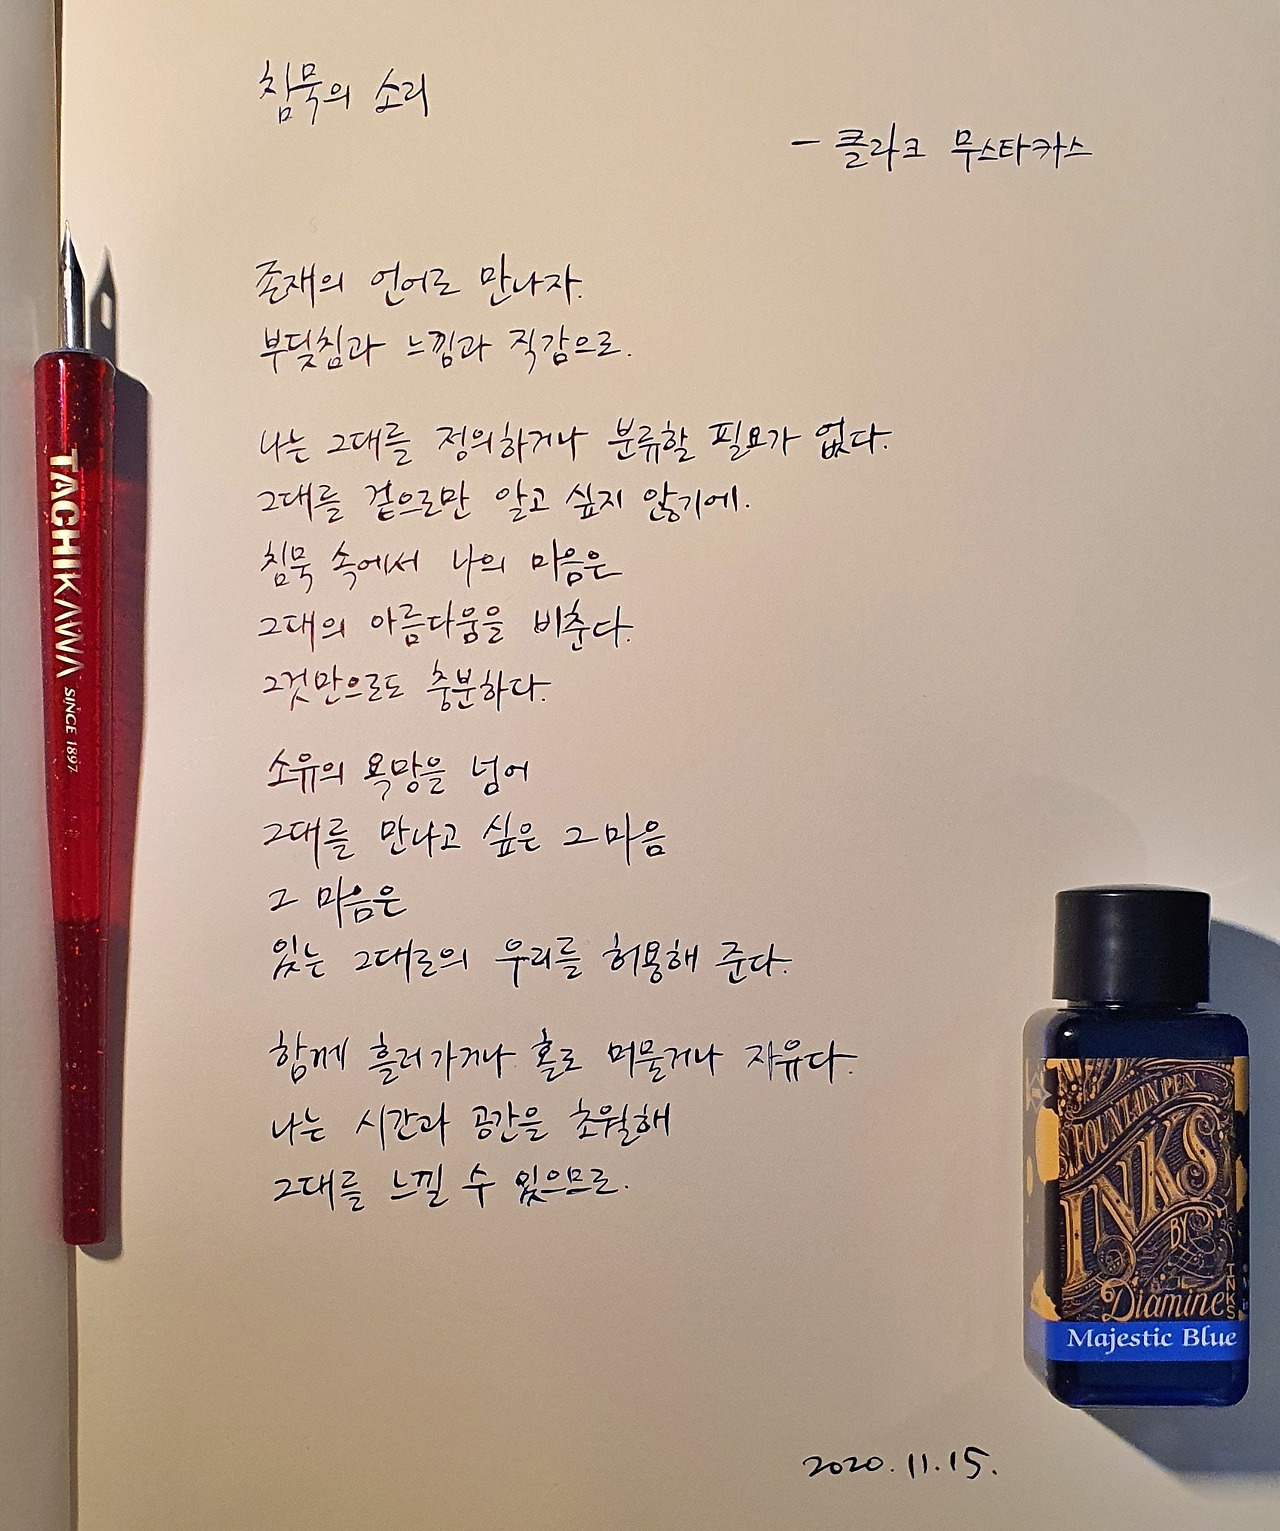 침묵의 소리
- 클라크 무스타카스
존재의 언어로 만나자.
부딪침과 느낌과 직감으로.
나는 그대를 정의하거나 분류할 필요가 없다.
그대를 겉으로만 알고 싶지 않기에.
침묵 속에서 나의 마음은
그대의 아름다움을 비춘다.
그것만으로도 충분하다.
소유의 욕망을 넘어
그대를 만나고 싶은 그 마음
그 마음은
있는 그대로의 우리를 허용해 준다.
함께 흘러가거나 홀로 머물거나 자유다.
나는 시간과 공간을 초월해
그대를 느낄 수 있으므로.
2020.11.15.
TACHIKAWA SINCE 1897
FOUNTAIN PEN
INKS
BY
Diamine
INKS
Majestic Blue